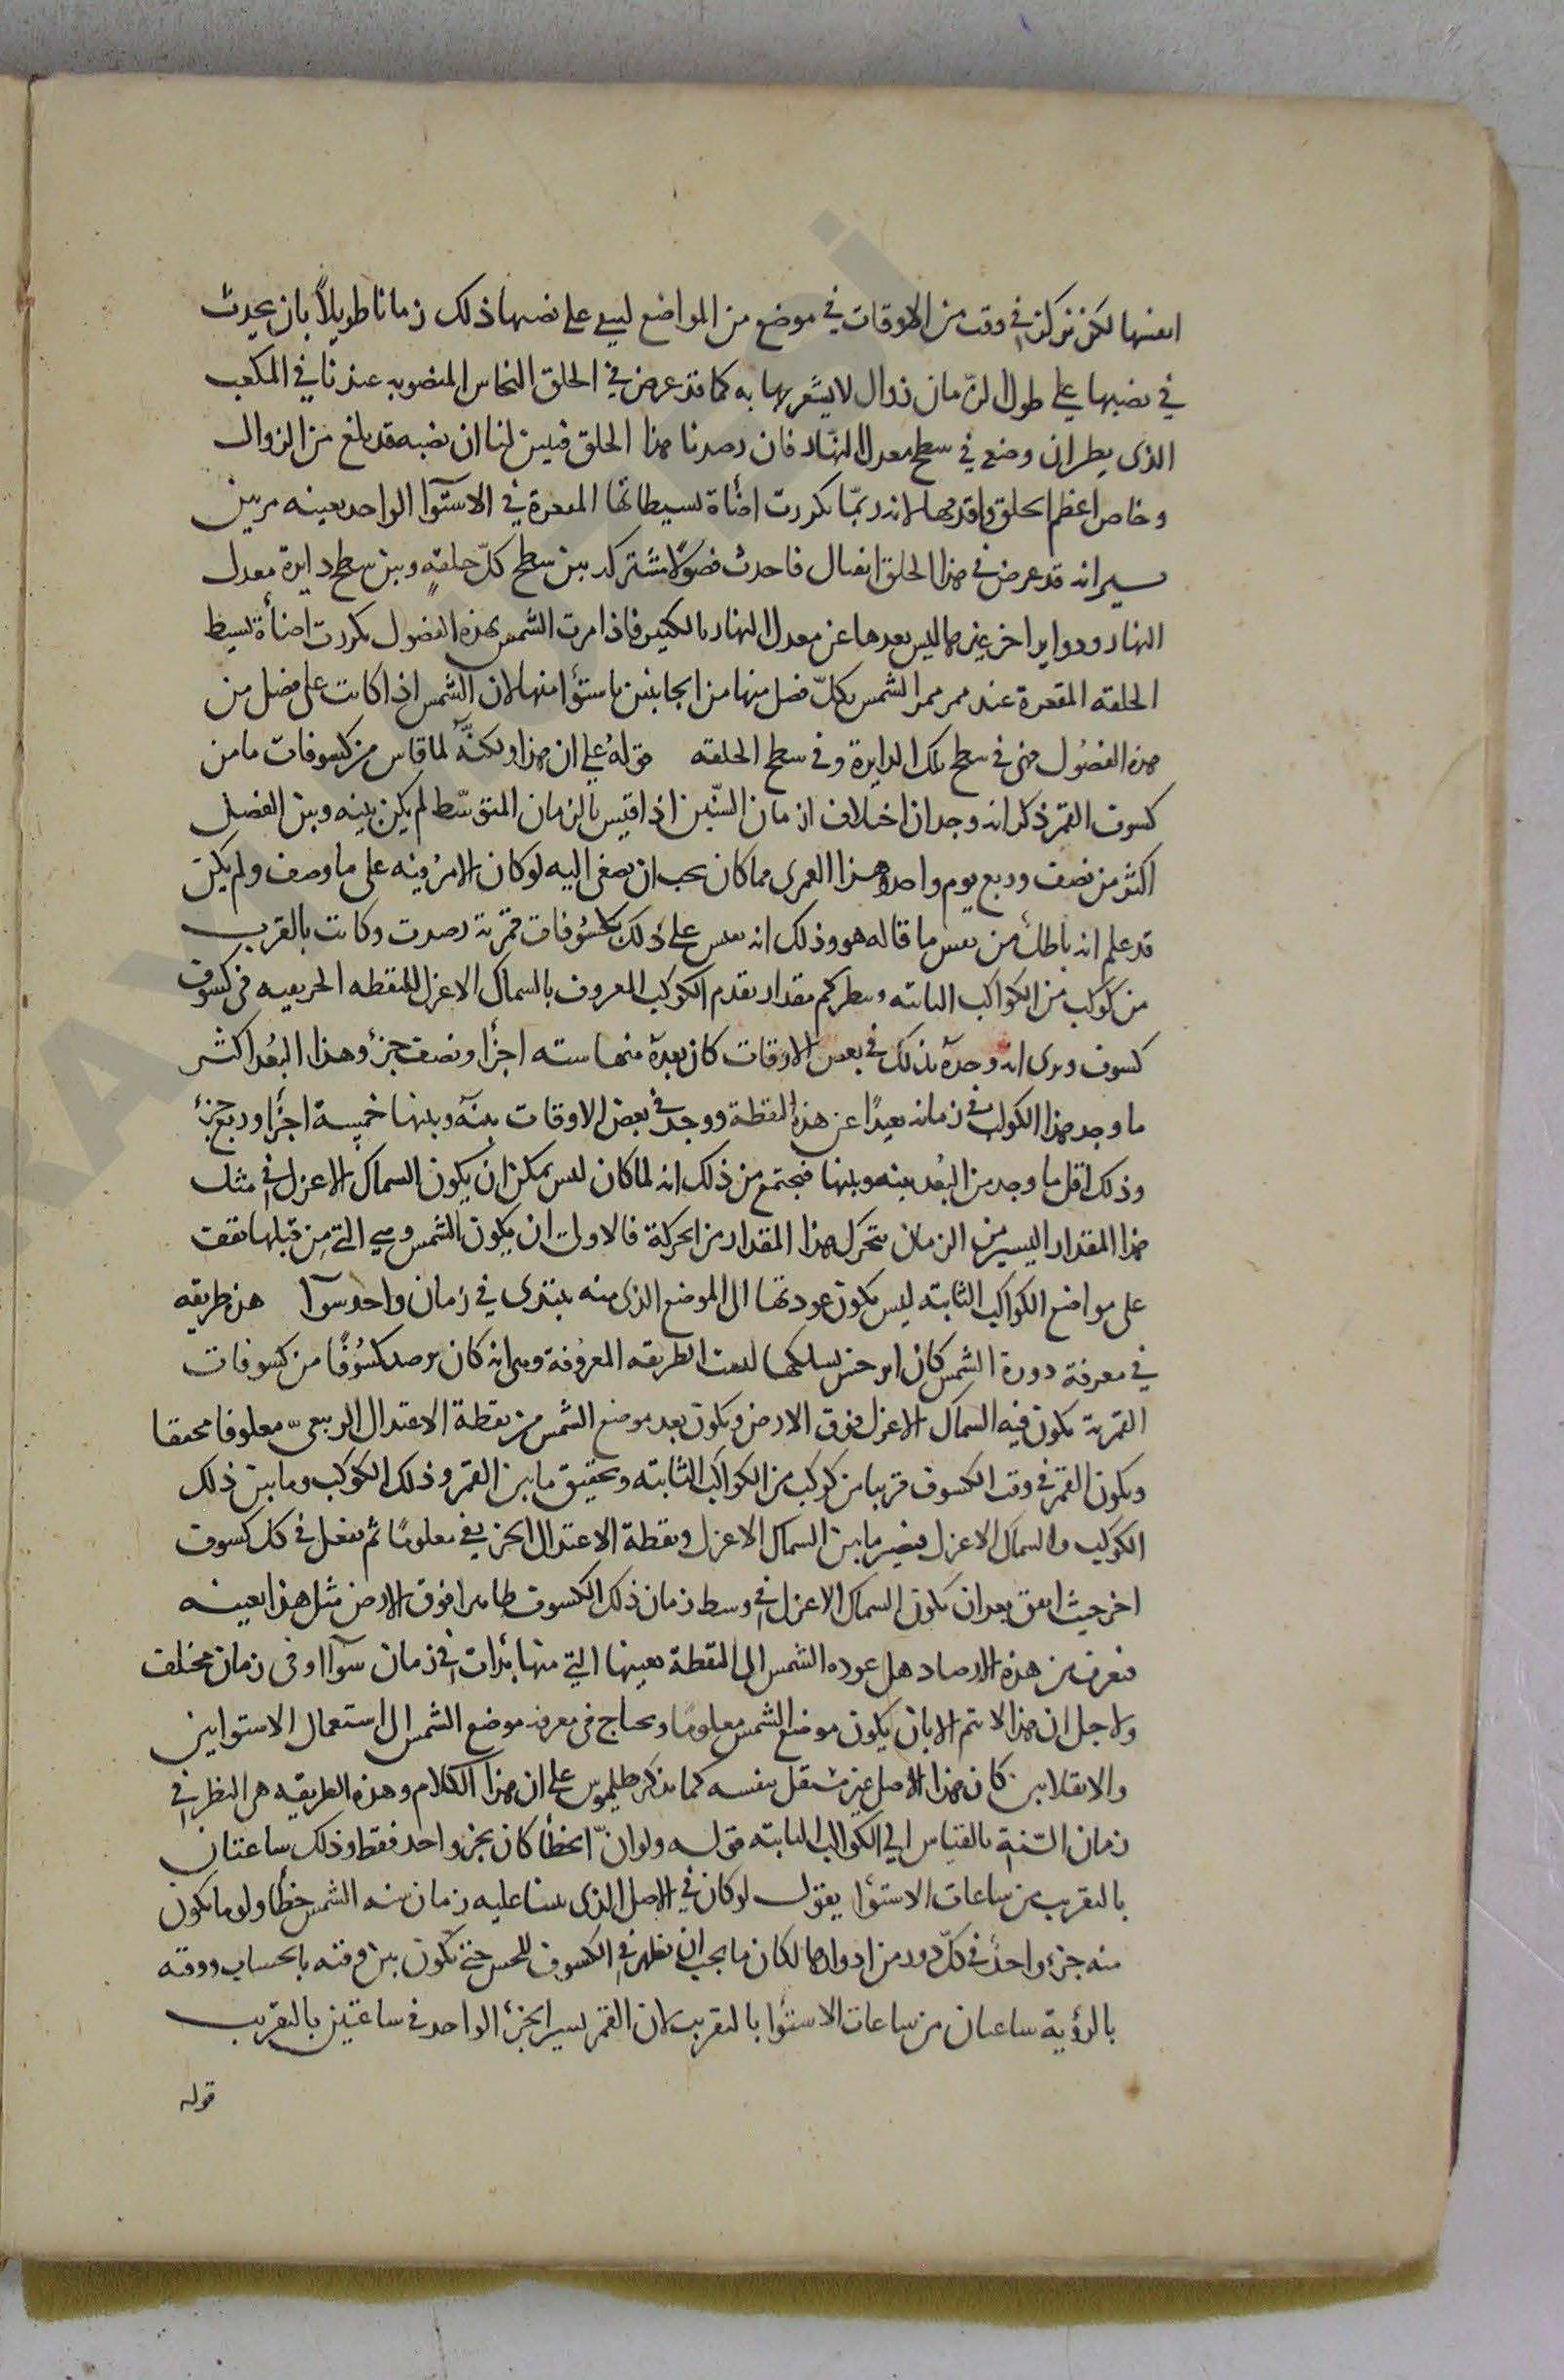 انفسها لكن تركن في وقت من الاوقات في موضع من المواضع ليبقى على نصبها ذلك زمانا طويلاً بان يحدث
في نصبها على طول الزمان زوال لا يشعر بها به كما قد عرض في الحلق النحاس المنصوبه عندنا في الملعب
الذى يظن ان وضعه في سطح معدل النهار فان رصدنا هذا الحلق فتبين لنا ان نصبه قد بلغ من الزوال
وخاصه اعظم الحلق واقدمها لانه ربمّا تكررت اضأة بسيطاتها المقعرة في الاستوآ الواحد بعينه مرتين
يبين انه قد عرض في هذا الحلق انفتال فاحدث فصولا مشتركه بين سطح كلّ حلقةٍ وبين سطح دايرة معدل
النهار ودواير اخر غيرها ليس بعدها عن معدل النهار بالكثير فاذا مرت الشمس بهذه الفصول تكررت اضأة بسيط
الحلقه المقعرة عند ممر ممر الشمس بكلّ فصل منها من الجانبين باستوأ منها لان الشمس اذا كانت على فصل من
هذه الفصُول فهى في سطح تلك الدايرة وفي سطح الحلقه قولهُ على ان هذا ولكنَّه لما قاس من كسوفات ما من
كسوف القمر ذكر انه وجد ان اختلاف ازمان السنّين اذا قيس بالزمان المتوسّط لم يكن بينه وبين الفصل
اكثر من نصف وربع يوم واحد وهذا لعمرى مما كان يجب ان يصغى اليه لو كان الامرُ فيه على ما وصف ولم يكن
قد علم انه باطل من نفس ما قاله هو وذلك انه يقيس على ذلك بكسُوفات قمرية رصدت وكانت بالقرب
من كوكب من الكواكب الثابته وينظر كم مقدار تقدم الكوكب المعروف بالسماك الاعزل للنقطه الخريفيه في كسوف
كسوف ويرى انه وجده بذلك في بعض الاوقات كان بعده منها سته اجزأ ونصف جزء وهذا البُعد اكثر
ما وجد هذا الكوكب في زمانه بعيدًا عن هذه النقطة ووجد في بعض الاوقات بينه وبينها خمسة اجزأ وربع جزء
وذلك اقل ما وجد من البُعد بينه وبينها فيجتمع من ذلك انه لما كان ليس يمكن ان يكون السماك الاعزل في مثل
هذا المقدار اليسير من الزمان يتحرك هذا المقدار من الحركة فالاولى ان يكون الشمس وهي التي من قبلها نقف
على مواضع الكواكب الثابته ليس يكون عودتها الى الموضع الذى منه يبتدى في زمان واحد سوآ هذه طريقه
في معرفة دورة الشمس كان ابرخس يسلكها ليست الطريقه المعرُوفة وهى انه كان يرصد كسُوفًا من كسوفات
القمرية يكون فيه السماك الاعزل فوق الارض ويكون بعد موضع الشمس من نقطة الاعتدال الربيعى معلوما محققا
ويكون القمر في وقت الكسوف قريبا من كوكب من الكواكب الثابته وتحقيق ما بين القمر وذلك الكوكب وما بين ذلك
الكوكب والسماك الاعزل فيصير ما بين السماك الاعزل ونقطة الاعتدال الخريفي معلومًا ثم يفعل في كل كسوف
اخر حيث اتفق بعد ان يكون السماك الاعزل في وسط زمان ذلك الكسوف ظاهرا فوق الارض مثل هذا بعينه
فيعرف من هذه الارصاد هل عوده الشمس الى النقطة بعينها التي منها بدأت في زمان سوآ او فى زمان مختلف
ولاجل ان هذا لا يتم الا بان يكون موضع الشمس معلومًا ويحتاج في معرفه موضع الشمس الى استعمال الاستوايين
والانقلابين كان هذا الاصل غير مستقل بنفسه كما يذكر بطليموس على ان هذا الكلام وهذه الطريقه هى النظر في
زمان السّنة بالقياس الي الكواكب الثابته قوله ولو انّ الخطأ كان بجزء واحد فقط وذلك ساعتان
بالتقريب من ساعات الاستوأ يقول لو كان في الاصل الذى بنينا عليه زمان سنه الشمس خطأ ولو ما يكون
منه جزء واحد في كلّ دور من ادوارها لكان ما يجب ان يظهر في الكسوف للحس حتى تكون بين وقته بالحساب ووقته
بالرؤية ساعتان من ساعات الاستوأ بالتقريب لان القمر يسير الجزء الواحد في ساعتين بالتقريب
قوله